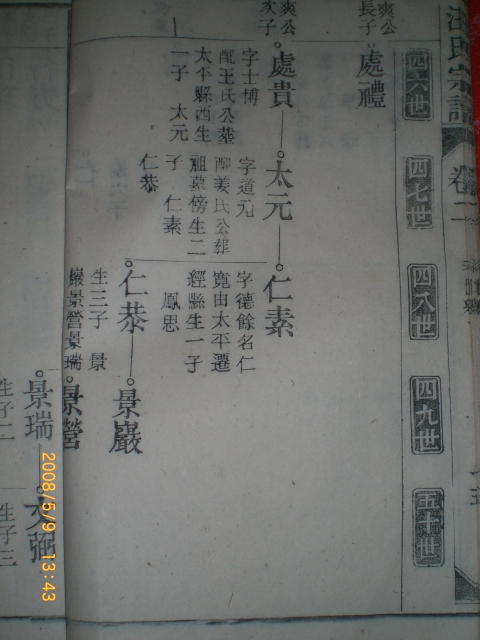 氏宗譜
卷二
四六世
四七世
四八世
四九世
五十世
爽公
長子
處禮
爽公
次子
處貴
字士博
配王氏公墓
太平縣西生
一子　太元
太元
字道元
配姜氏公葬
祖墓傍生二
子　仁素
仁恭
仁素
字德餘名仁
寬由太平遷
經縣生一子
鳳思
仁恭
生三子　景
巖景營景瑞
景巖
景營
景瑞
生子二
生子三
2008/5/9 13:43